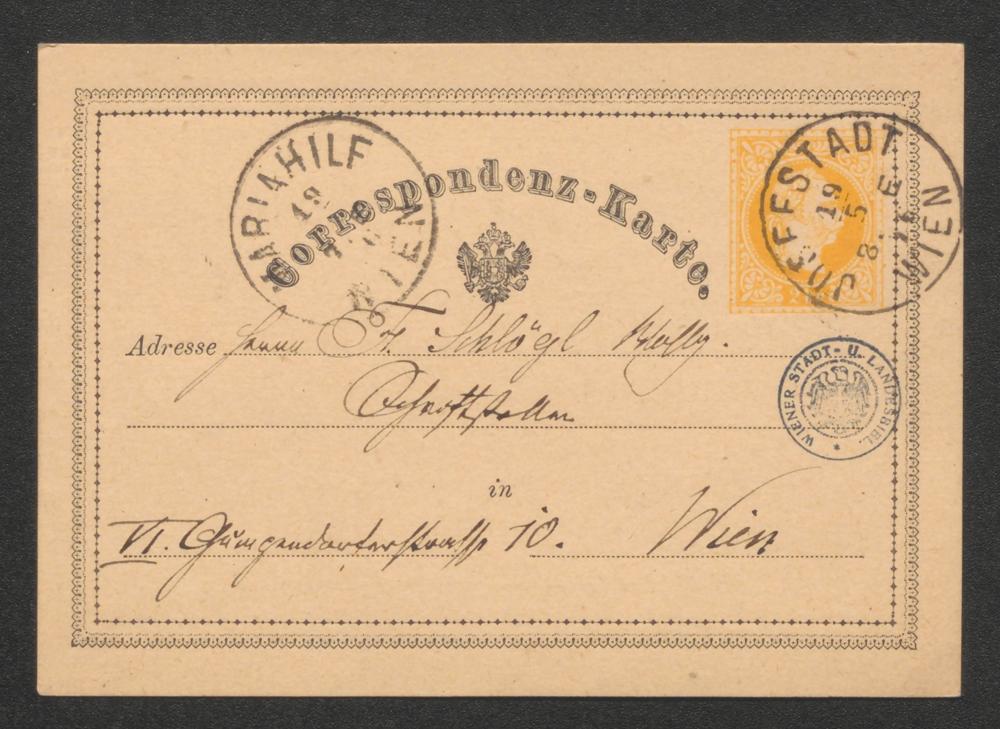 MARIAHILF
19
WIEN
Correspondenz-Karte.
JOSEFSTADT
19
5
8. E
WIEN
Adresse Herrn Fr. Schlögl
WIENER STADT- U. LANDESBIBL.
Schriftsteller
in
VI. Gumpendorferstrasse 10. Wien